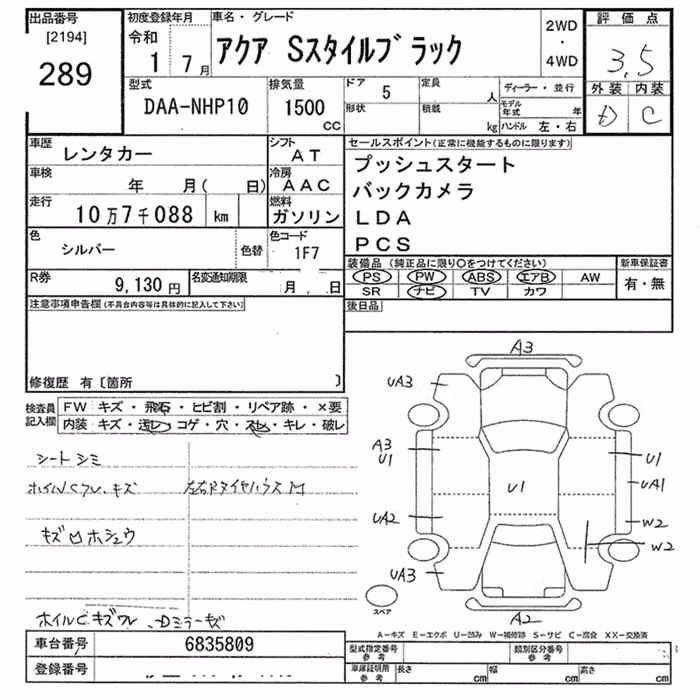 出品番号
[2194]
289
初度登録年月
令和
1 7月
車名・グレード
アクア Sスタイルブラック
2WD
・
4WD
評価点
3.5
外装 内装
D C
型式
DAA-NHP10
排気量
1500
CC
ドア 5
形状
定員 人
積載 kg
ディーラー・並行
モデル年式 年
ハンドル 左・右
車歴
レンタカー
シフト
AT
車検
年 月( 日)
冷房
AAC
走行
10万7千088 km
燃料
ガソリン
色
シルバー
色替
色コード
1F7
R券
9,130円
名変通知期限
月 日
セールスポイント(正常に機能するものに限ります)
プッシュスタート
バックカメラ
LDA
PCS
装備品(純正品に限り○をつけてください)
新車保証書
PS PW ABS エアB AW
SR ナビ TV カワ
有・無
後日品
注意事項申告欄(不具合内容等は具体的に記入して下さい)
修復歴 有〔箇所 〕
検査員
記入欄
FW キズ・飛石・ヒビ割・リペア跡・×要
内装 キズ・汚レ・コゲ・穴・スレ・キレ・破レ
シートシミ
ホイルCワレ、キズ
左右Rタイヤハウス M
キズ凹ホシュウ
ホイルCキズワレ、Dミラーキズ
A3
UA3
A3
U1
U1
U1
UA1
UA2
W2
W2
UA3
A2
スペア
A-キズ E-エクボ U-凹み W-補修跡 S-サビ C-腐食 XX-交換済
車台番号
6835809
登録番号
型式指定番号
参考
類別区分番号
参考
車庫証明用
参考
長さ cm
幅 cm
高さ cm